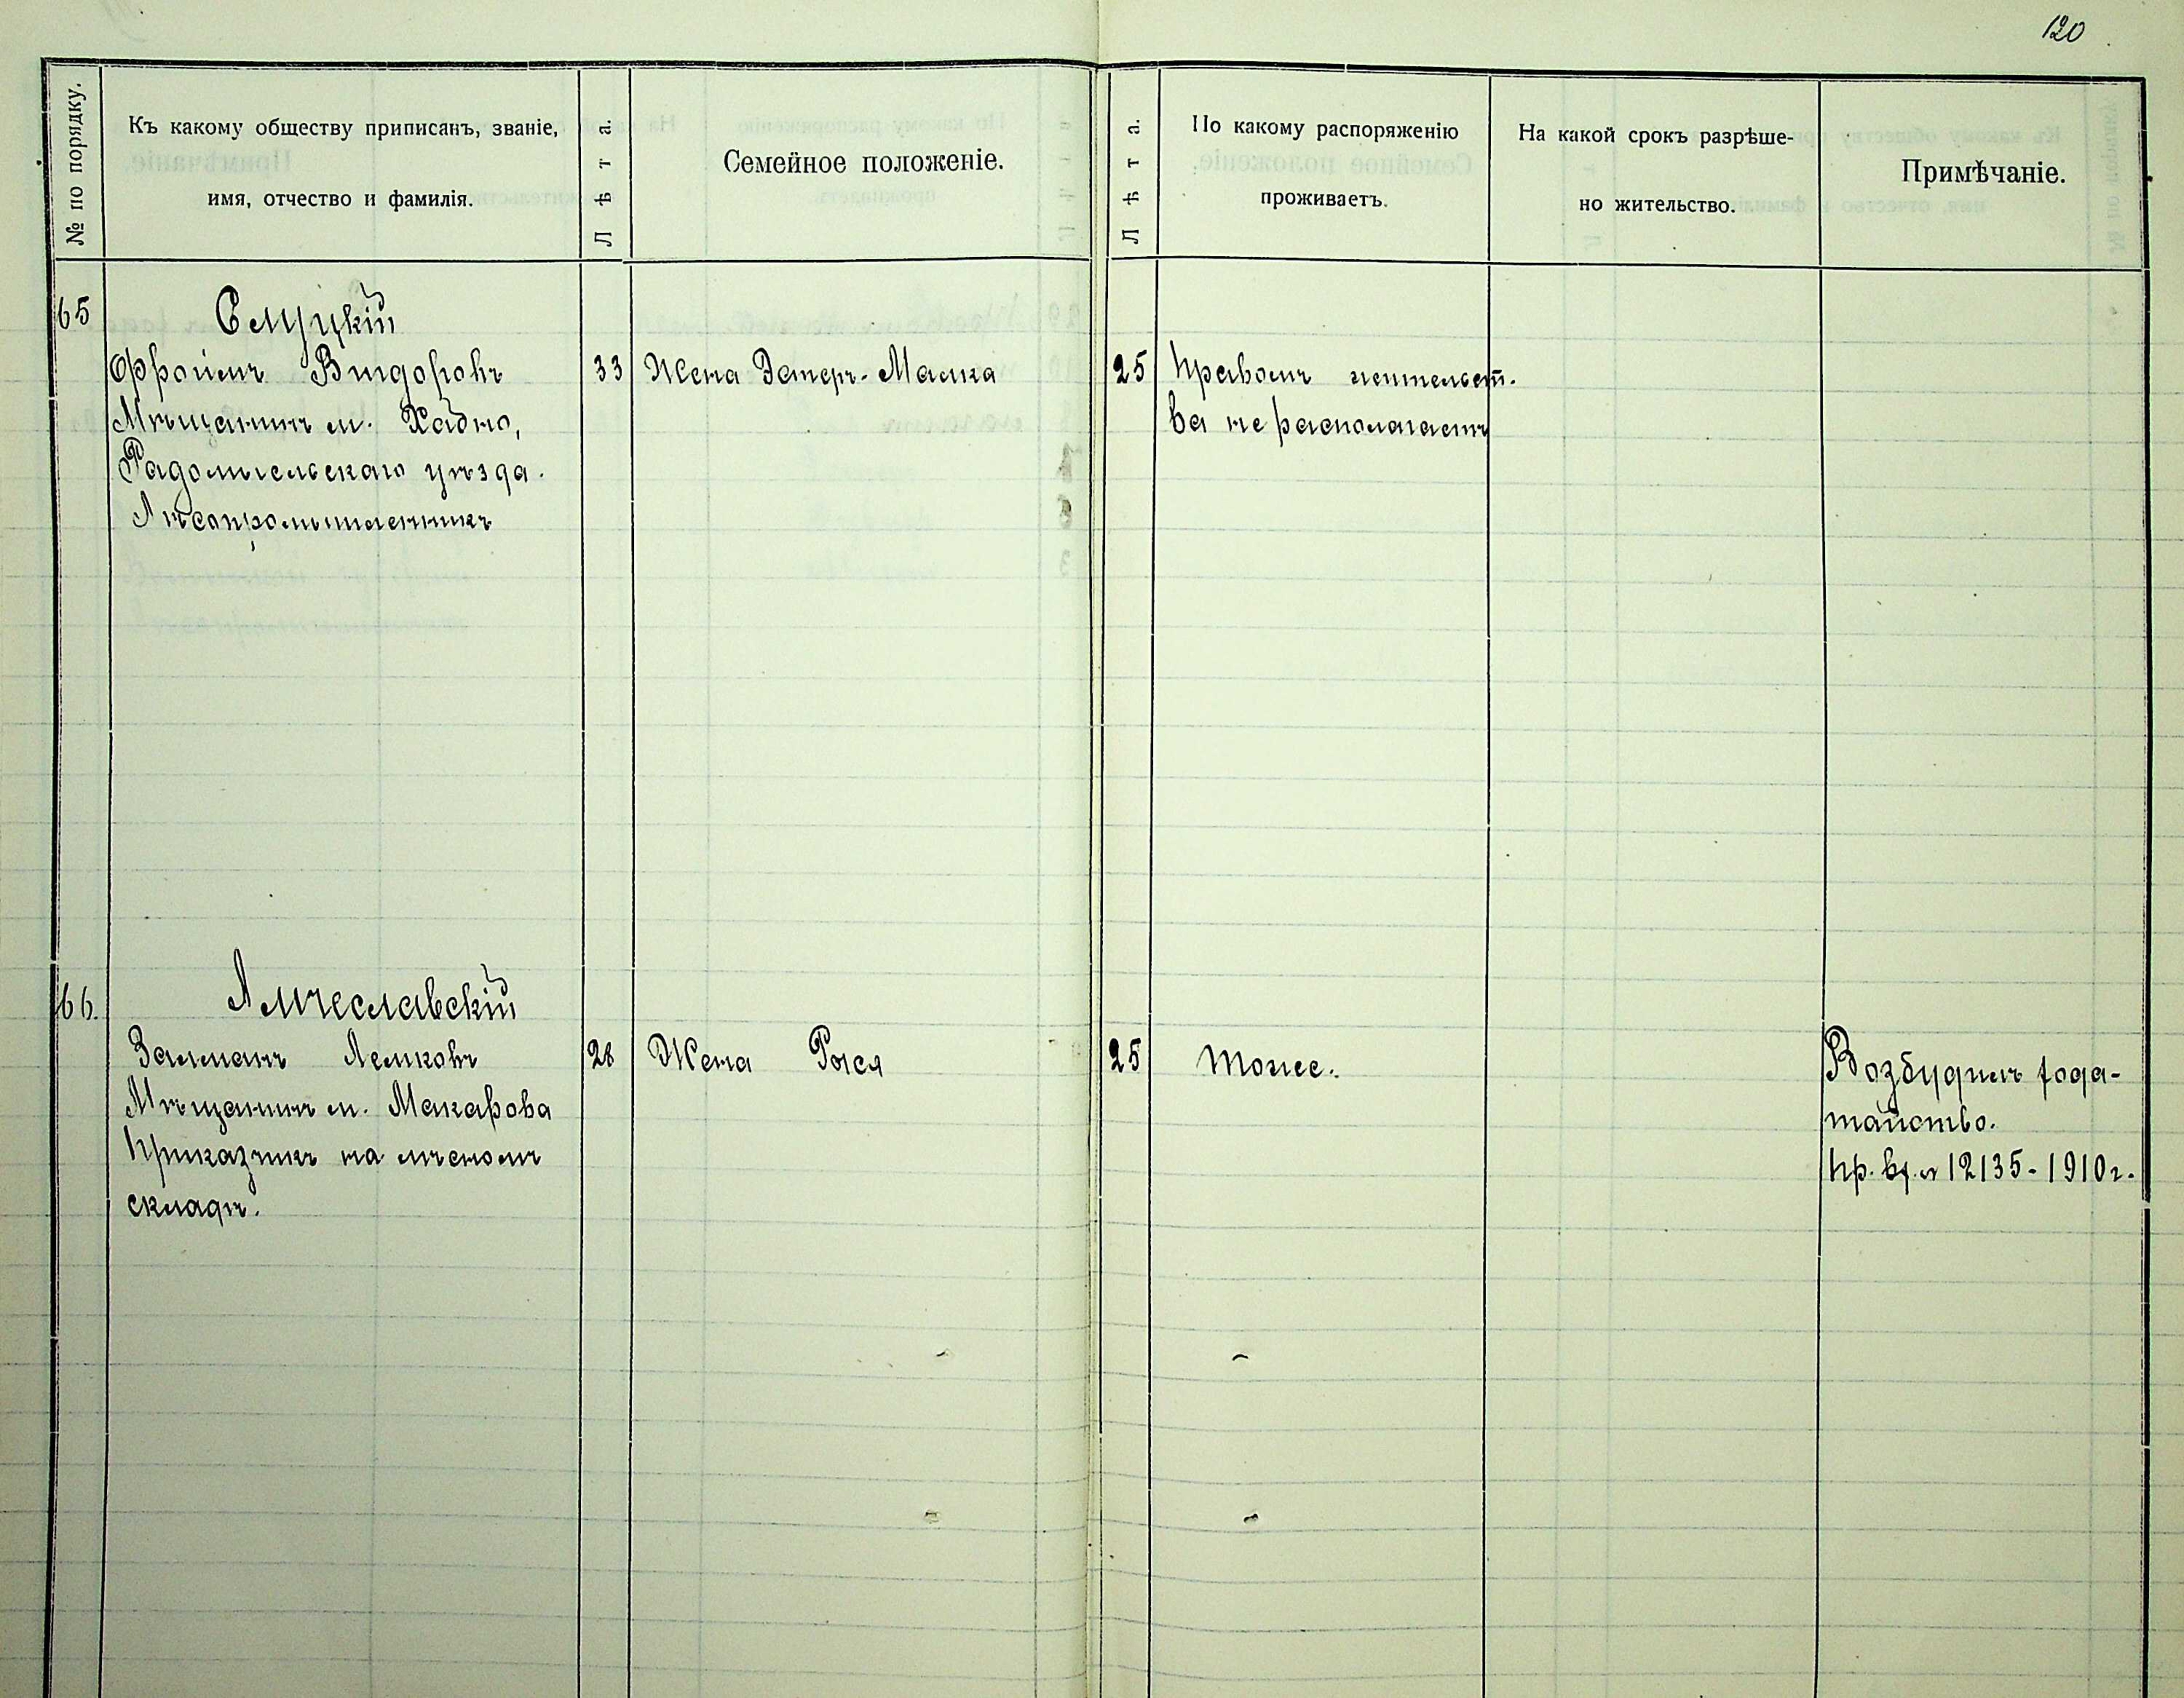 120
№ по порядку.
Къ какому обществу приписанъ, званіе,
имя, отчество и фамилія.
Лѣта.
Семейное положеніе.
Лѣта.
По какому распоряженію
проживаетъ.
На какой срокъ разрѣше-
но жительство.
Примѣчаніе.
65
Слуцкій
Фроимъ Видоровъ
33
Жена Эстеръ-Малка
25
Правомъ жительст-
Мѣщанинъ м. Хабно,
ва не располагаетъ
Радомысльскаго уѣзда.
Лѣсопромышленникъ
66.
Амчеславскій
Залманъ Лейковъ
28
Жена Рыся
25
Тоже.
Возбудилъ хода-
Мѣщанинъ м. Макарова
тайство.
Приказчикъ на лѣсномъ
Пр. вх. № 12135-1910 г.
складѣ.